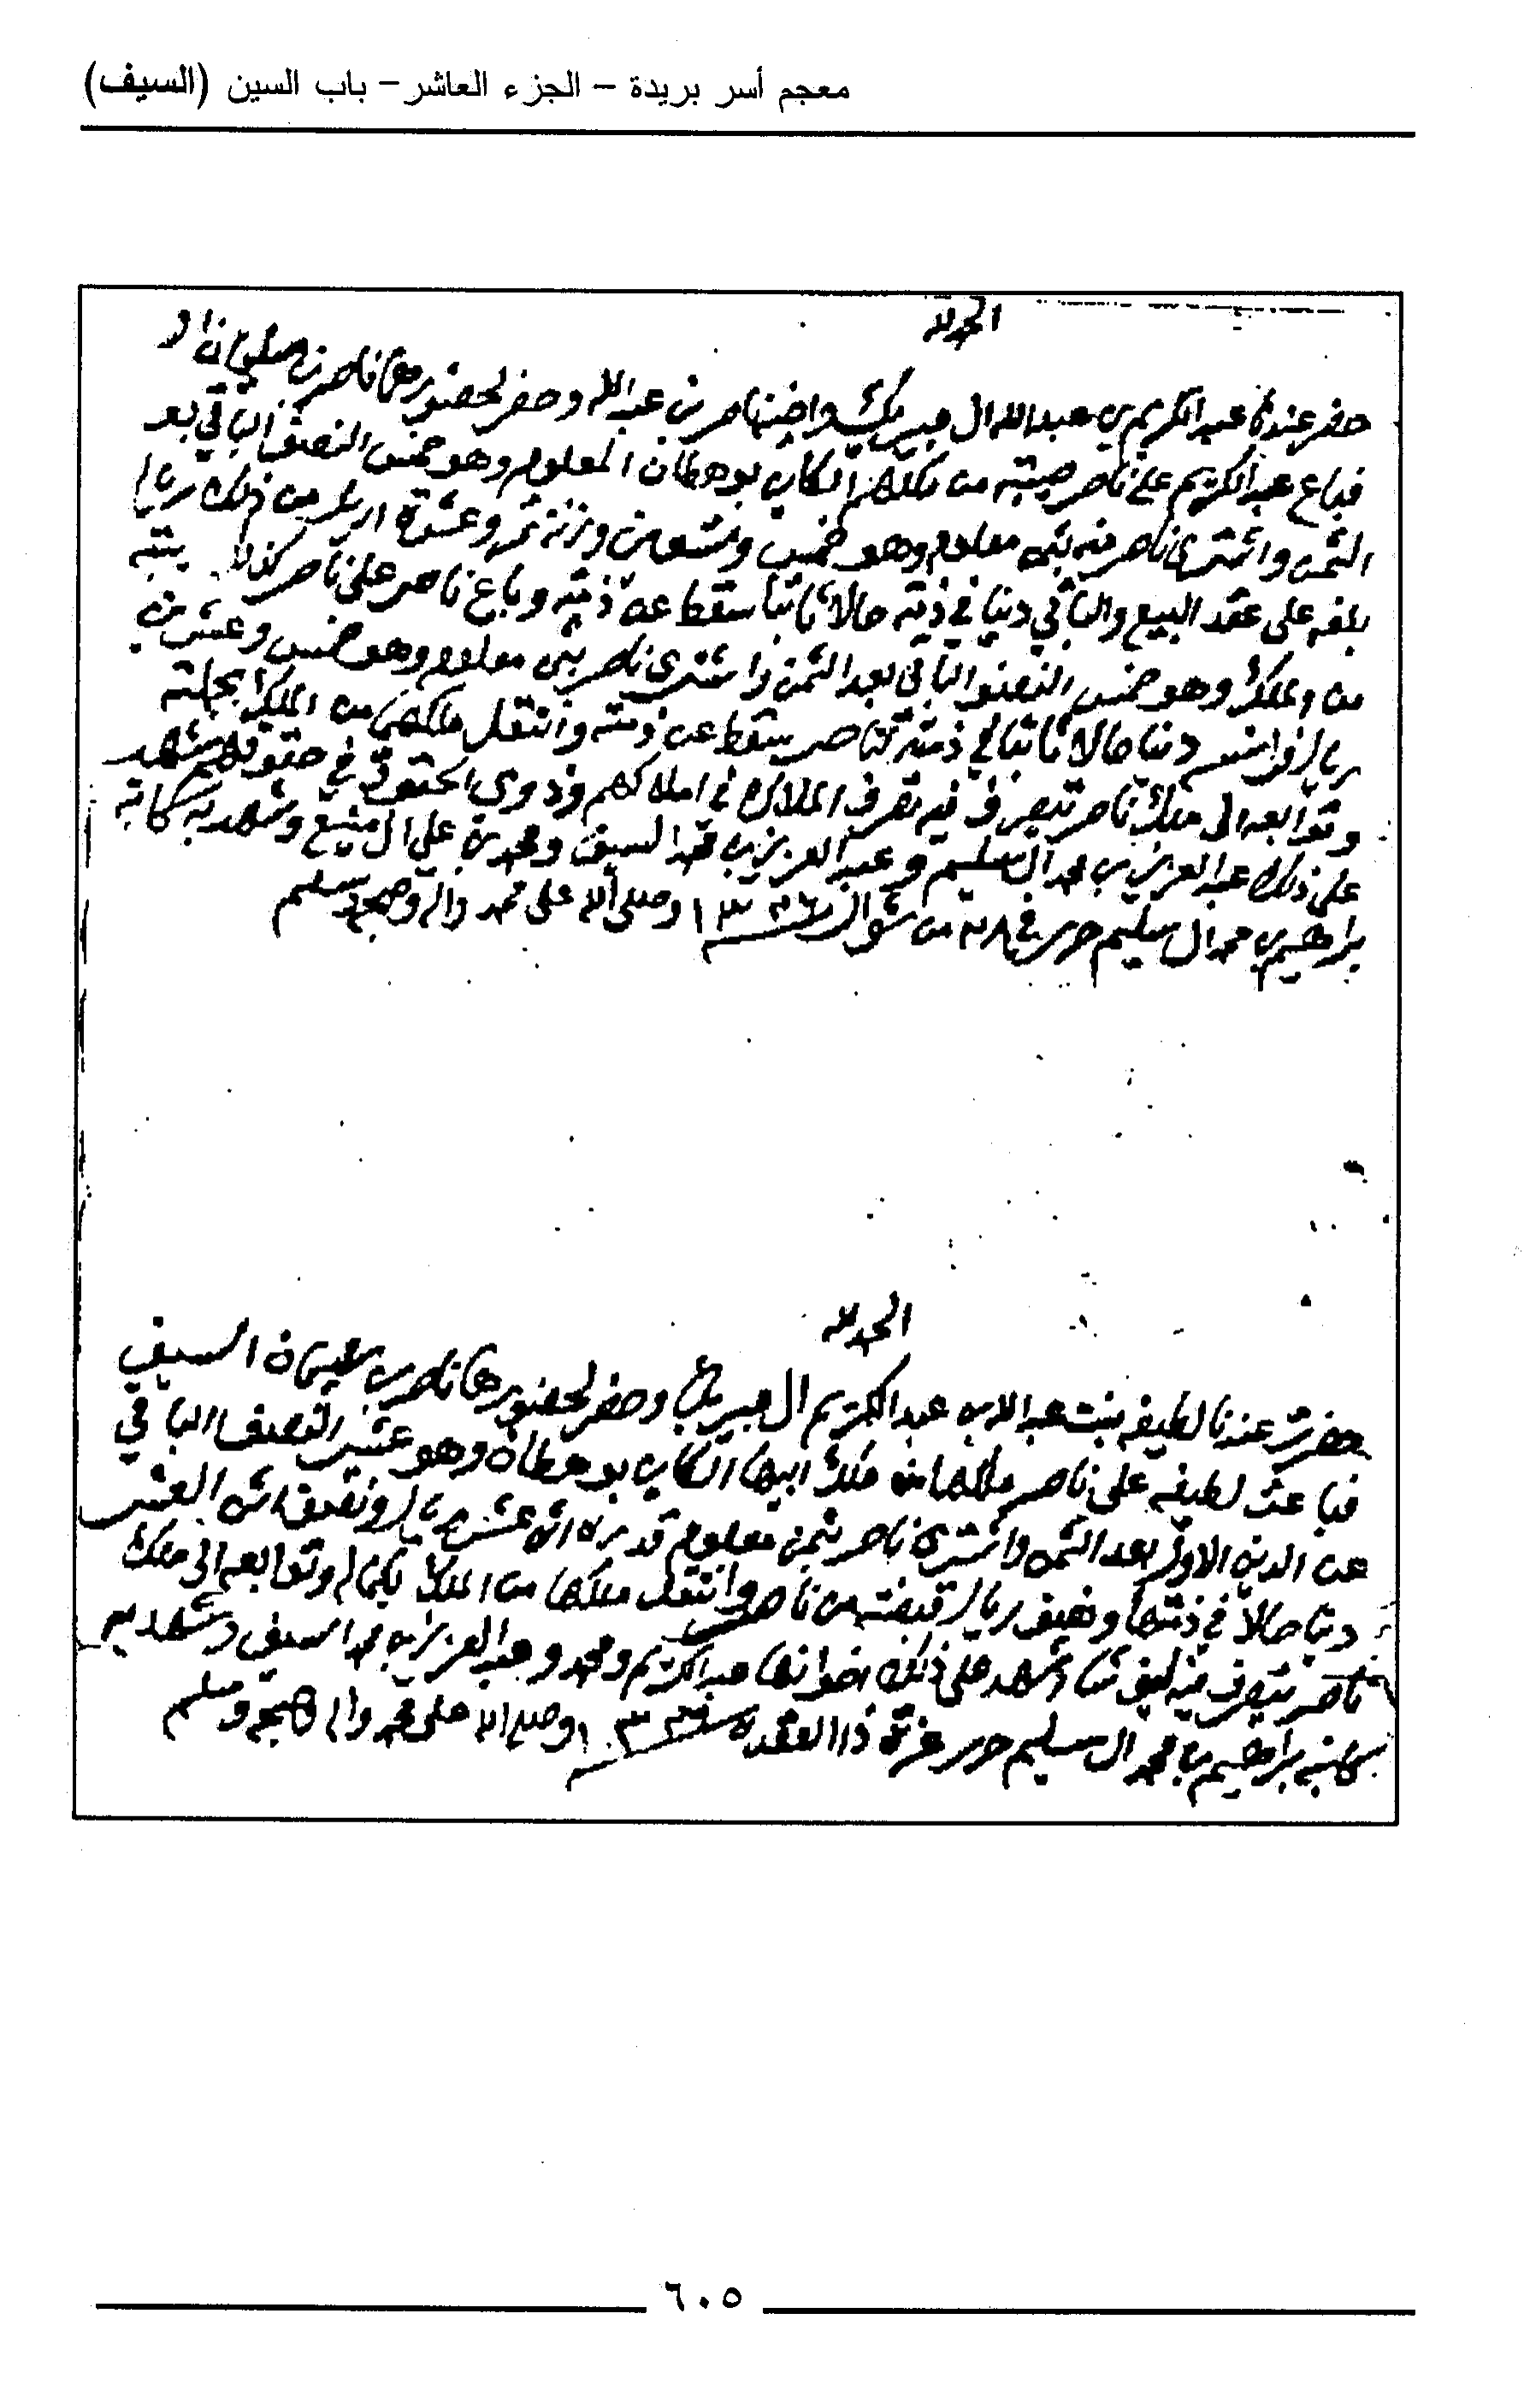 معجم أسر بريدة – الجزء العاشر – باب السين (السيف)
الحمد لله
حضر عندنا عبد الكريم بن عبد الله ال مبيريك واخيه ناصر بن عبد الله وحضر لحضورهما ناصر بن سليمان
فباع عبد الكريم على ناصر من ملكهم الكاين بوهطان المعلوم وهو خمس النصف الباقي بعد
الثمن واشترى ناصر منه بثمن معلوم وهو خمس وتسعين وزنة تمر وعشرة اريل من ذلك ريال
بلغه على عقد البيع والباقي دينا في ذمته حالا ثابتا سقط عن ذمته وباع ناصر على ناصر كذلك
من الملك وهو خمس النصف الباقي بعد الثمن واشترى ناصر بثمن معلوم وهو خمس وعشرين
ريال فرانسه دينا حالا ثابتا في ذمته لناصر سقط عن ذمته وانتقل ملكهما من الملك بجملته
وتوابعه الى ملك ناصر يتصرف فيه تصرف الملاك في املاكهم وذوي الحقوق في حقوقهم شهد
على ذلك عبد العزيز بن محمد ال سليم وعبد العزيز بن محمد السيف ومحمد بن علي ال منيع وشهد به كاتبه
براهيم بن محمد ال سليم حرر في من شوال ١٣٣٦ وصلى الله على محمد واله وصحبه وسلم
الحمد لله
حضرت عندنا لطيفه بنت عبد الله بن عبد الكريم ال مبيريك وحضر لحضورها ناصر بن سليمان السيف
فباعت لطيفه على ناصر ملكها من ملك ابيها الكاين بوهطان وهو عشر النصف الباقي
عن الدين الاول بعد الثمن واشترى ناصر بثمن معلوم قدره اثنا عشر ريال ونصف العشر
دينا حالا في ذمتها ونصف ريال قبضته من ناصر وانتقل ملكها من الملك بكماله وتوابعه الى ملك
ناصر يتصرف فيه كيف شاء شهد على ذلك اخوانها عبد الكريم ومحمد وعبد العزيز بن محمد السيف وشهد به
كاتبه براهيم بن محمد ال سليم حرر غرة ذا القعده وصلى الله على محمد واله وصحبه وسلم
٦٠٥